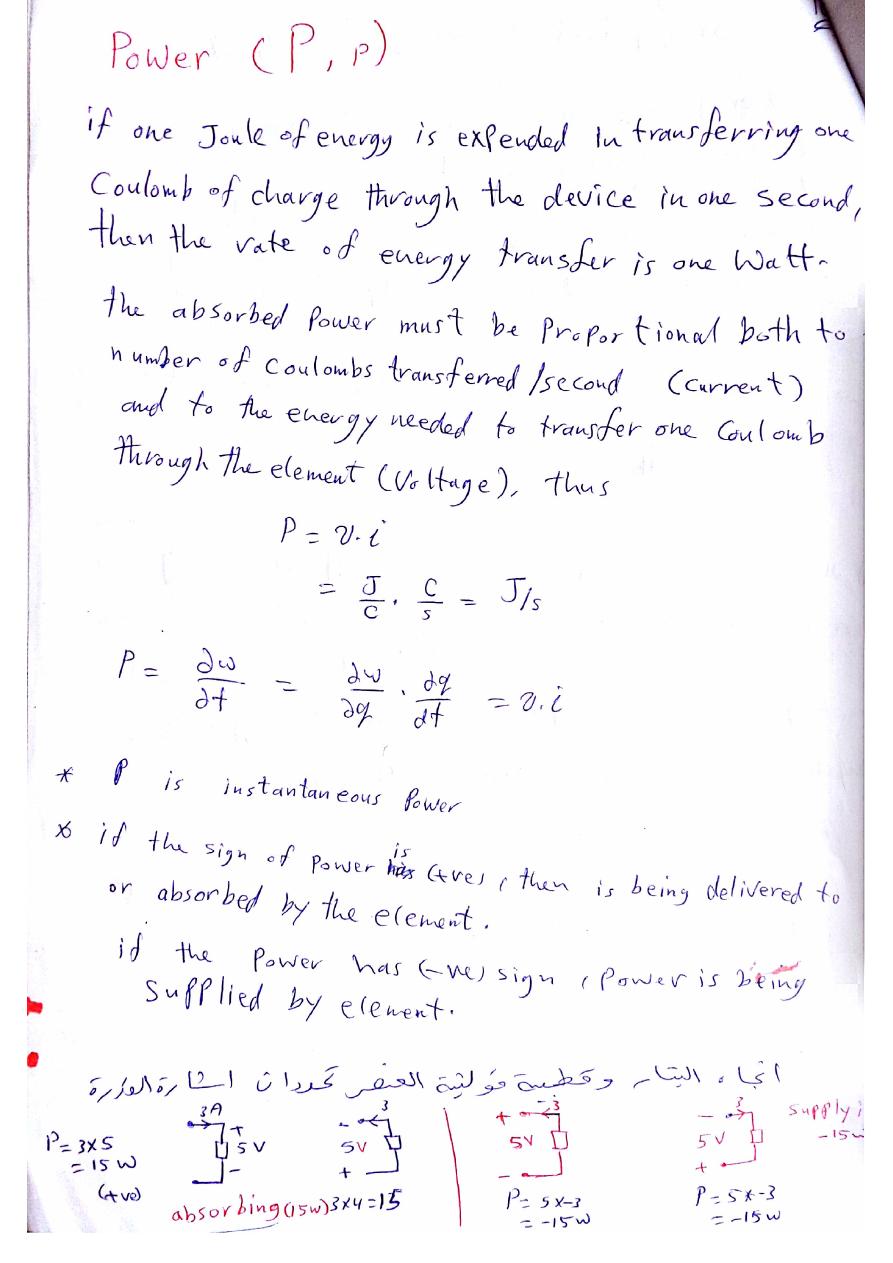 Power (P, p)
if one Joule of energy is expended in transferring one
Coulomb of charge through the device in one second,
then the rate of energy transfer is one Watt.
the absorbed Power must be Proportional both to
number of Coulombs transferred /second (current)
and to the energy needed to transfer one Coulomb
through the element (Voltage), thus
P = v.i
= J/C . C/s = J/s
P = ∂w/∂t = ∂w/∂q . ∂q/∂t = v.i
* P is instantaneous Power
* if the sign of Power is (+ve), then is being delivered to
or absorbed by the element.
if the Power has (-ve) sign, Power is being
Supplied by element.
اتجاه التيار وقطبية فولتية العنصر تحددان اشارة القدرة
3A + 5V -
P = 3x5
= 15 W
(+ve)
3 - 5V +
absorbing (15w) 3x4=15
+ -3 5V -
P = 5x-3
= -15 W
- -3 5V +
P = 5x-3
= -15 W
Supply
-15